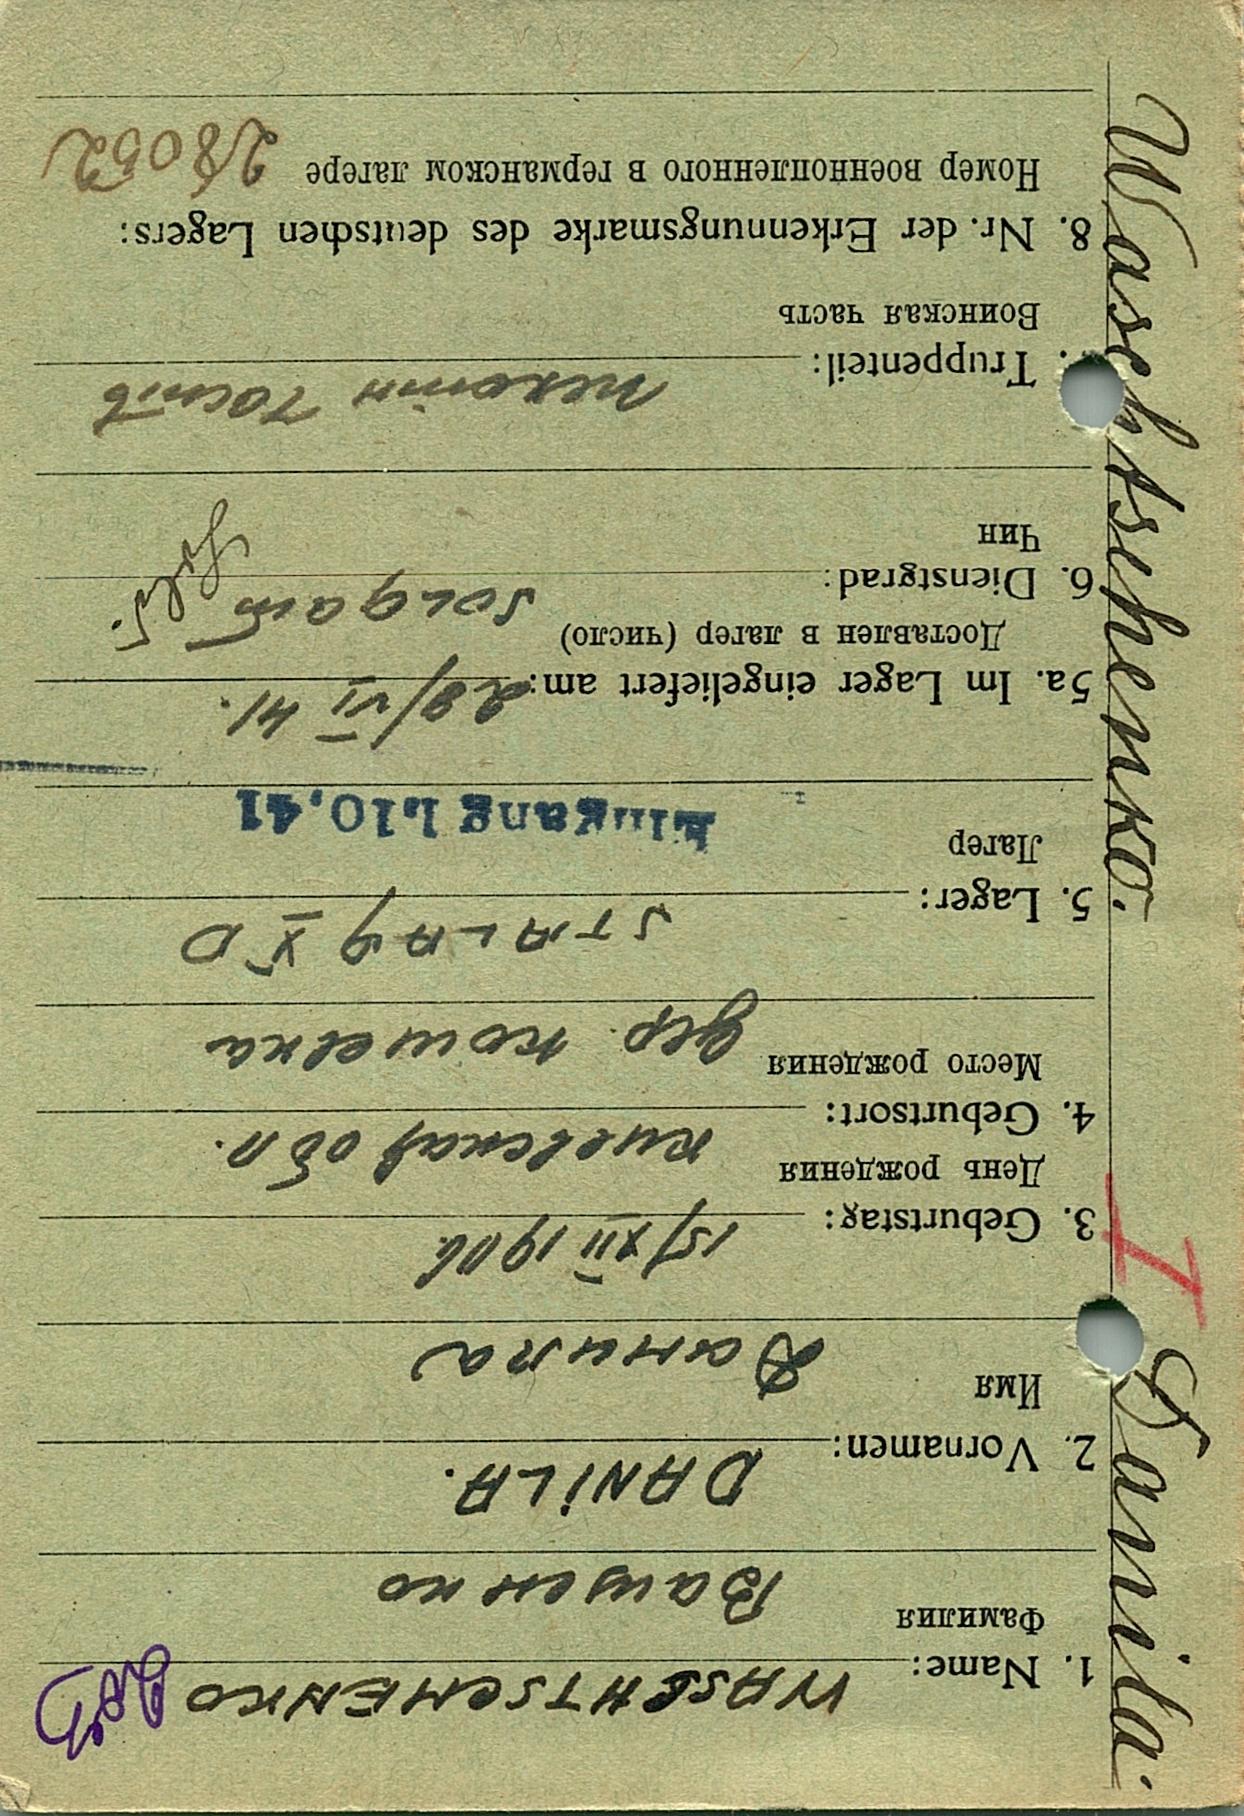 1. Name: WASCHTSCHENKO
Фамилия Ващенко
DANILA.
2. Vornamen:
Имя Данила
15/XII 1906
3. Geburtstag:
День рождения
киевская обл.
4. Geburtsort:
Место рождения
дер. кошевка
STALAG X D
5. Lager:
Лагер
Eingang 1.10.41
28/VI 41.
5a. Im Lager eingeliefert am:
Доставлен в лагер (число)
солдат
6. Dienstgrad:
Чин
пехотн часть
7. Truppenteil:
Воинская часть
8. Nr. der Erkennungsmarke des deutschen Lagers:
Номер военнопленного в германском лагере 28052
Waschtschenko. Danila.
I